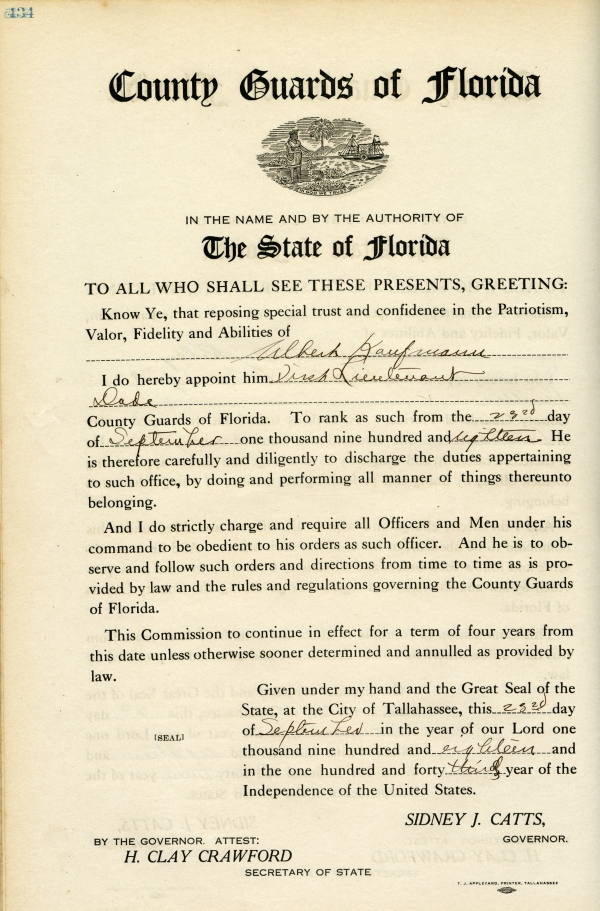 434
County Guards of Florida
IN THE NAME AND BY THE AUTHORITY OF
The State of Florida
TO ALL WHO SHALL SEE THESE PRESENTS, GREETING:
Know Ye, that reposing special trust and confidence in the Patriotism,
Valor, Fidelity and Abilities of
Albert Kaufmann
I do hereby appoint him First Lieutenant
Dade
County Guards of Florida. To rank as such from the 23rd day
of September one thousand nine hundred and eighteen He
is therefore carefully and diligently to discharge the duties appertaining
to such office, by doing and performing all manner of things thereunto
belonging.
And I do strictly charge and require all Officers and Men under his
command to be obedient to his orders as such officer. And he is to ob-
serve and follow such orders and directions from time to time as is pro-
vided by law and the rules and regulations governing the County Guards
of Florida.
This Commission to continue in effect for a term of four years from
this date unless otherwise sooner determined and annulled as provided by
law.
Given under my hand and the Great Seal of the
State, at the City of Tallahassee, this 23rd day
of September in the year of our Lord one
[SEAL]
thousand nine hundred and eighteen and
in the one hundred and forty third year of the
Independence of the United States.
SIDNEY J. CATTS,
GOVERNOR.
BY THE GOVERNOR. ATTEST:
H. CLAY CRAWFORD
SECRETARY OF STATE
T. J. APPLEYARD, PRINTER, TALLAHASSEE